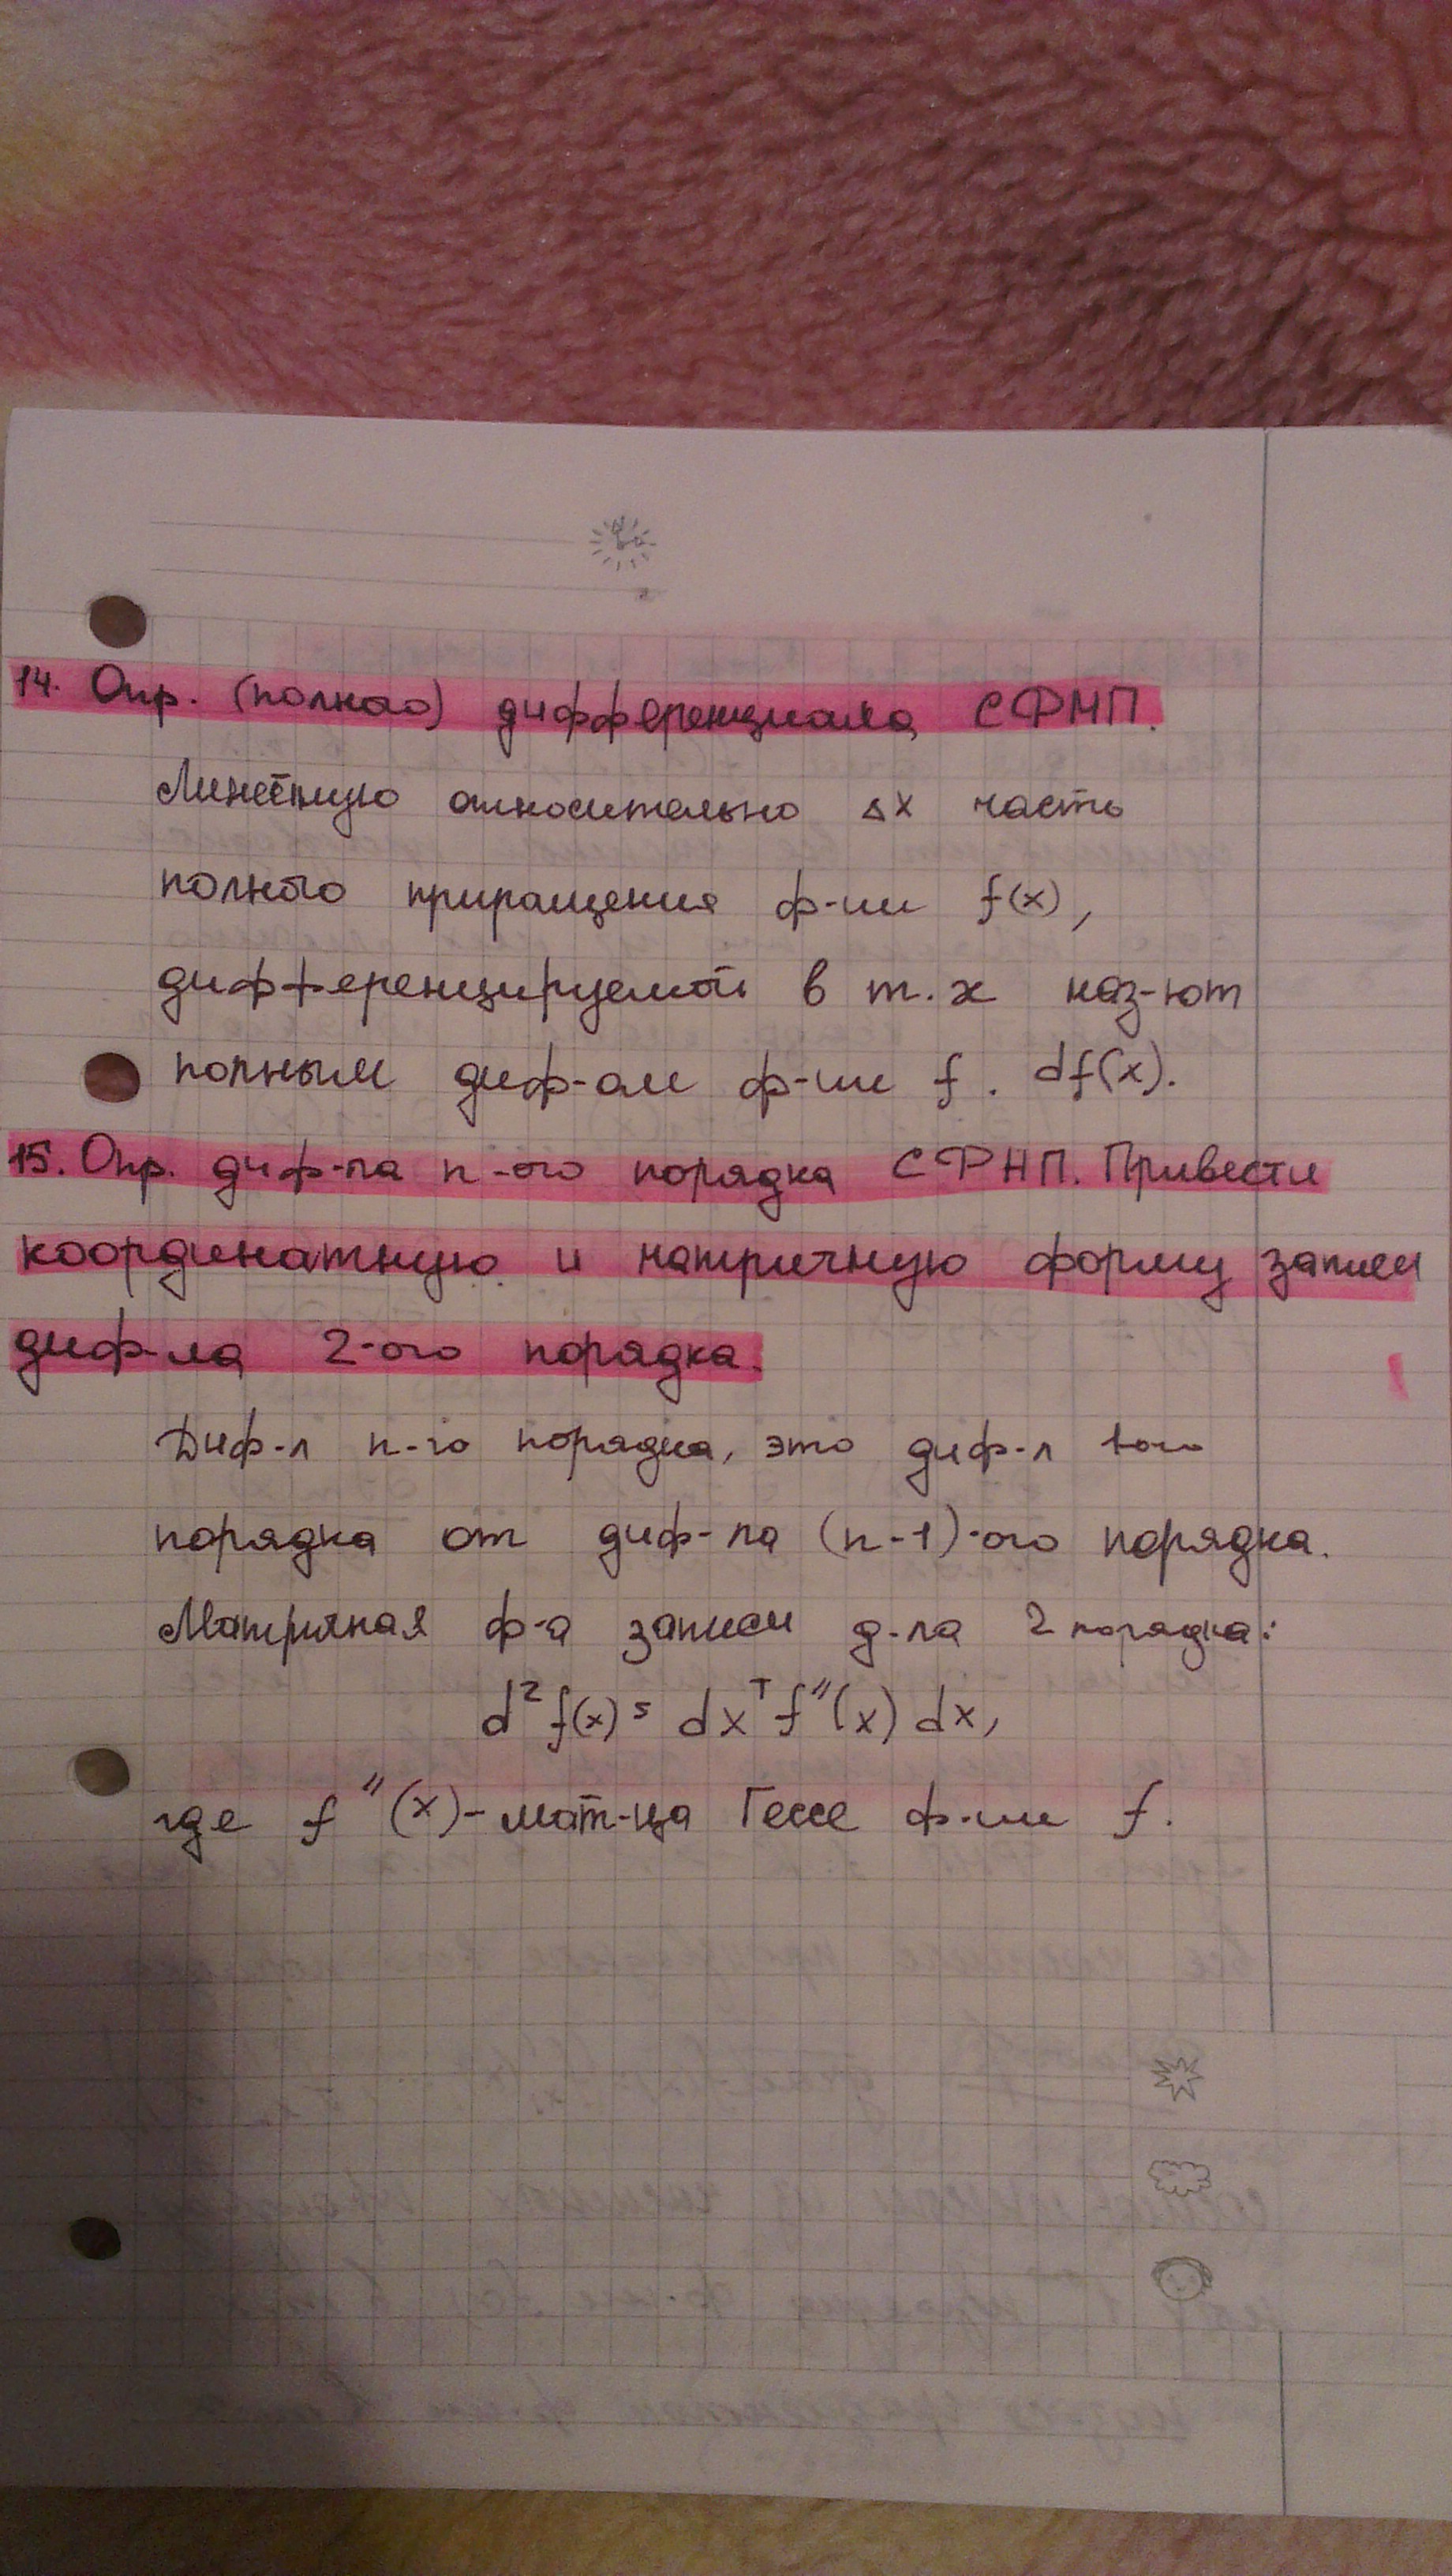 14. Опр. (полного) дифференциала СФНП.
Линейную относительно Δx часть
полного приращения ф-ии f(x),
дифференцируемой в т. x наз-ют
полным диф-ом ф-ии f. df(x).
15. Опр. диф-ла n-ого порядка СФНП. Привести
координатную и матричную форму записи
диф-ла 2-ого порядка.
Диф-л n-го порядка, это диф-л 1ого
порядка от диф-ла (n-1)-ого порядка.
Матричная ф-а записи д-ла 2 порядка:
d²f(x) = dxᵀ f″(x) dx,
где f″(x) - мат-ца Гессе ф-ии f.